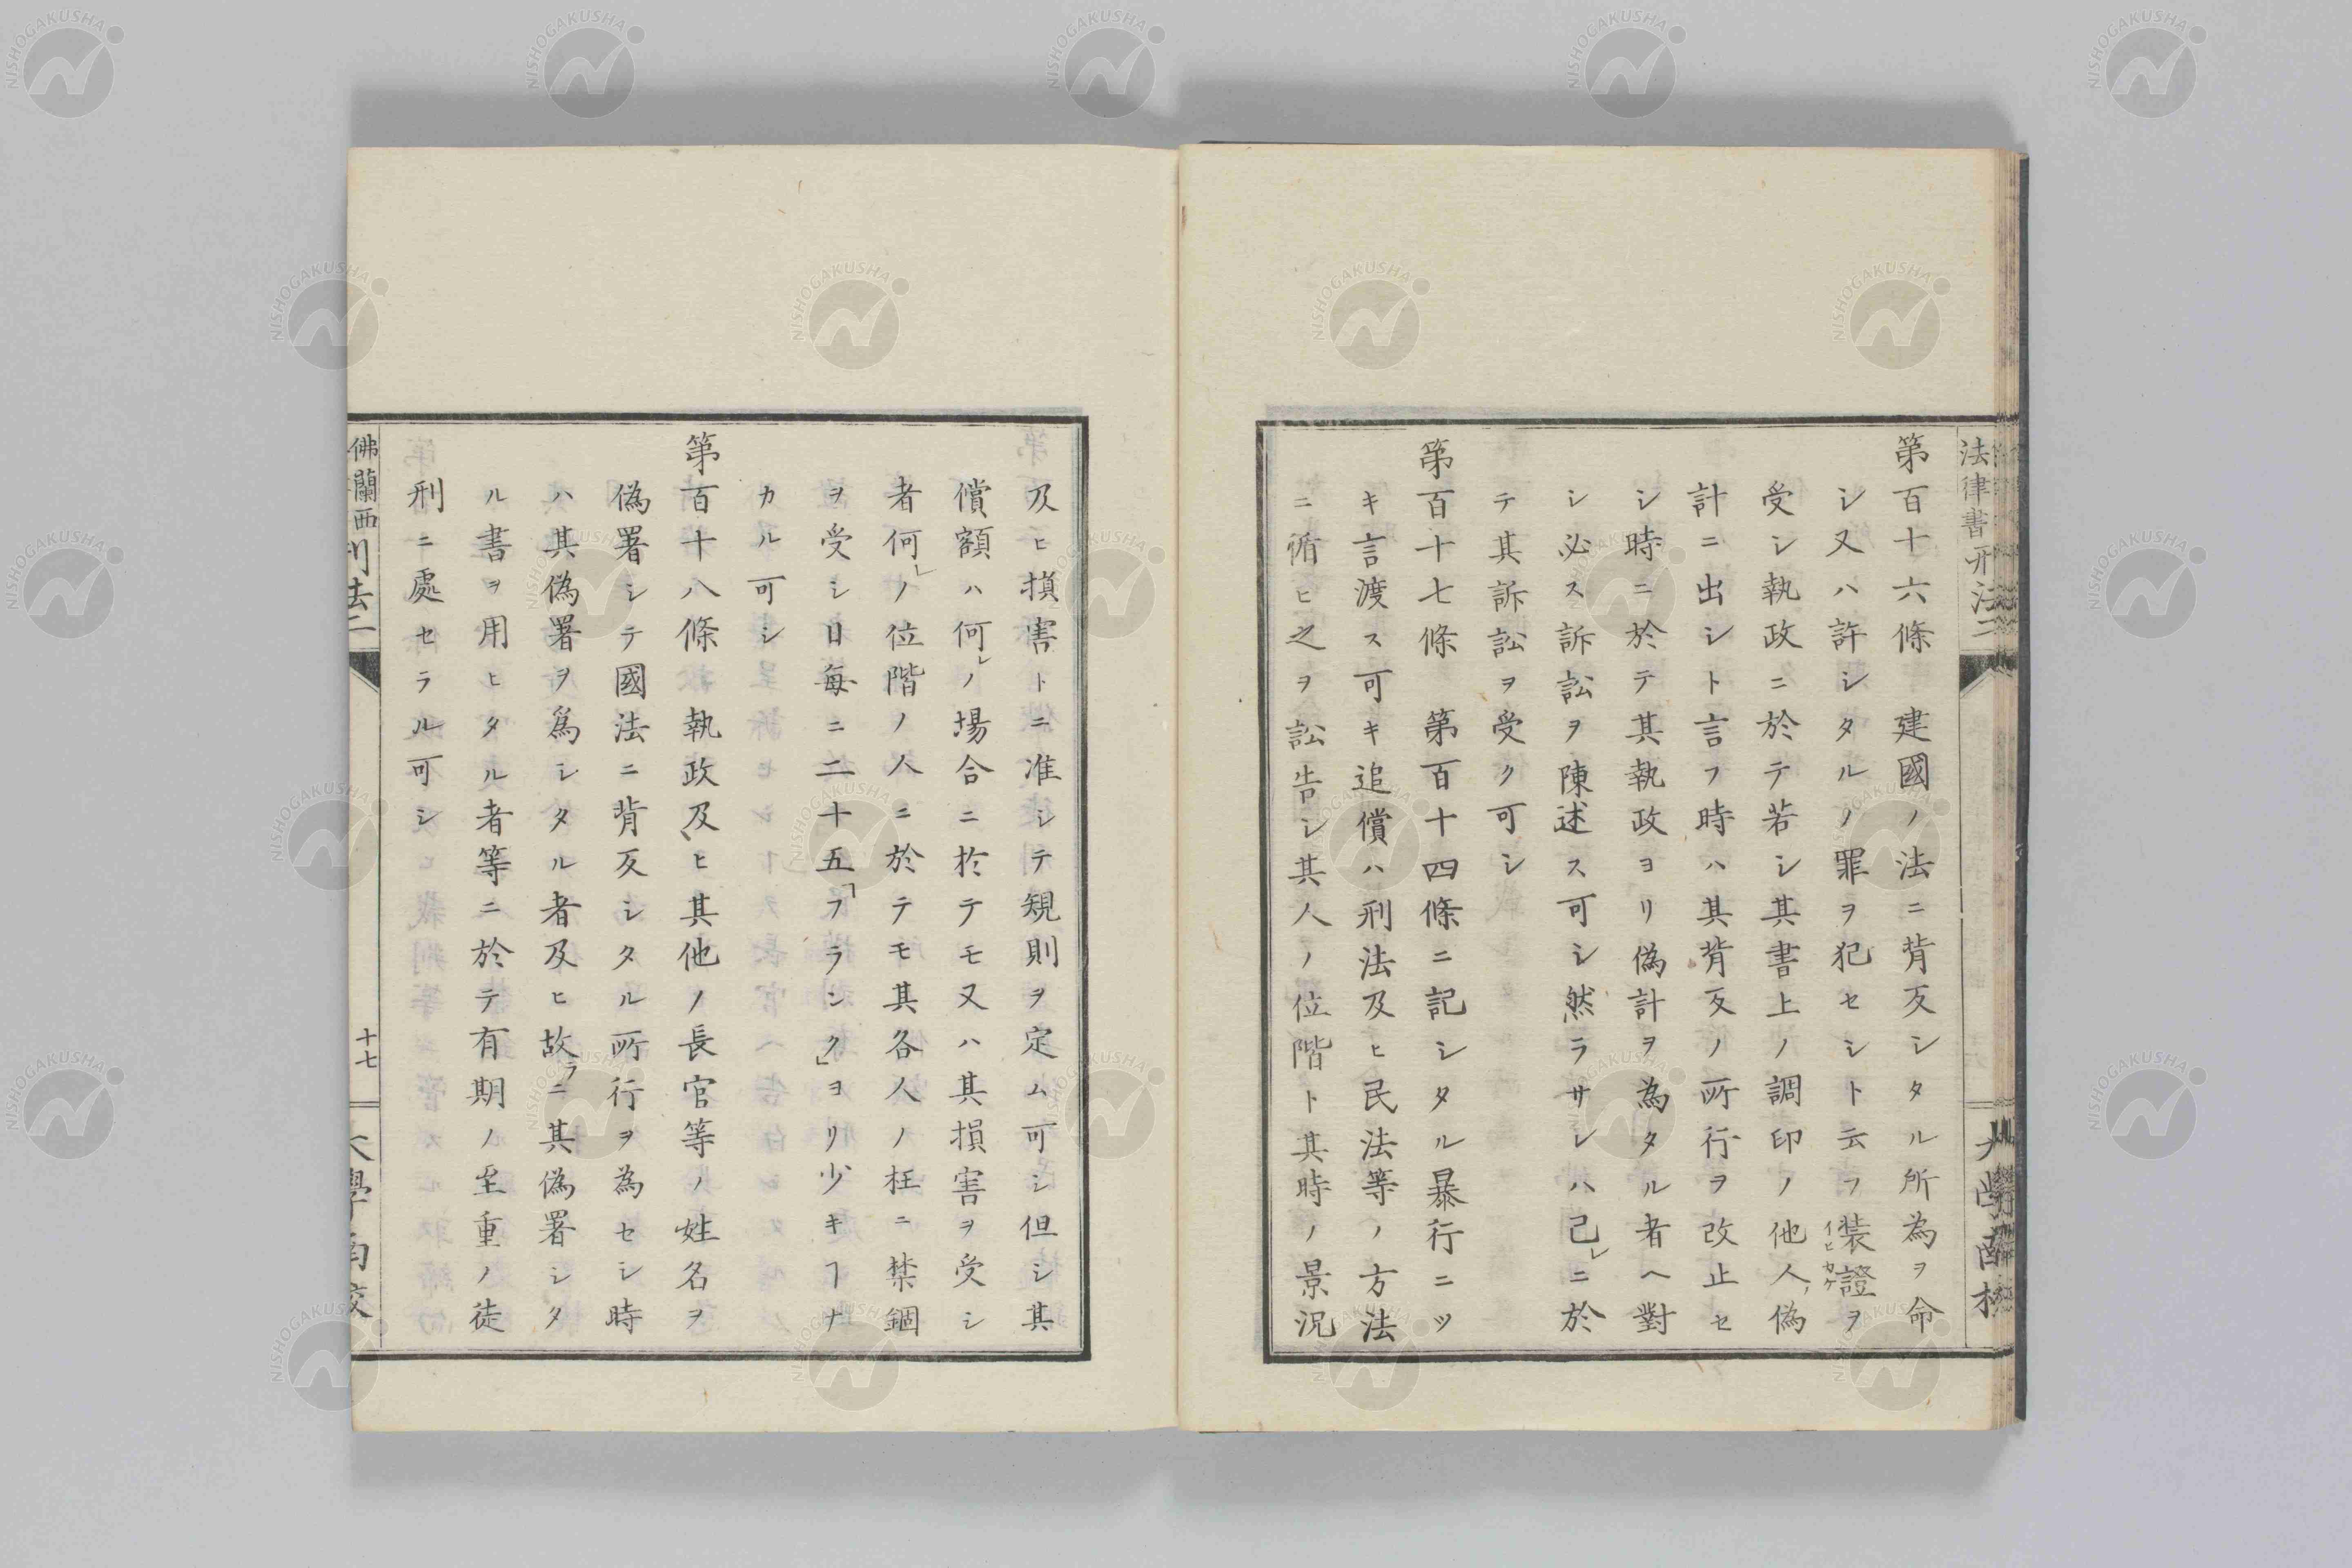 第百十六條　建國ノ法ニ背反シタル所為ヲ命
シ又ハ許シタルノ罪ヲ犯セシト云フ装證ヲ
イヒカケ
受シ執政ニ於テ若シ其書上ノ調印ノ他人ノ偽
計ニ出シト言フ時ハ其背反ノ所行ヲ改止セ
シ時ニ於テ其執政ヨリ偽計ヲ為タル者ヘ對
シ必ス訴訟ヲ陳述ス可シ然ラサレハ己レニ於
テ其訴訟ヲ受ク可シ
第百十七條　第百十四條ニ記シタル暴行ニツ
キ言渡ス可キ追償ハ刑法及ヒ民法等ノ方法
ニ循ヒ之ヲ訟告シ其人ノ位階ト其時ノ景況
及ヒ損害トニ准シテ規則ヲ定ム可シ但シ其
償額ハ何レノ場合ニ於テモ又ハ其損害ヲ受シ
者何レノ位階ノ人ニ於テモ其各人ノ枉ニ禁錮
ヲ受シ日毎ニ二十五「フランク」ヨリ少キヿナ
カル可シ
第百十八條執政及ヒ其他ノ長官等ノ姓名ヲ
偽署シテ國法ニ背反シタル所行ヲ為セシ時
ハ其偽署ヲ為シタル者及ヒ故ラニ其偽署シタ
ル書ヲ用ヒタル者等ニ於テ有期ノ至重ノ徒
刑ニ處セラル可シ
佛蘭西刑法二
十七
大學南校
NISHOGAKUSHA